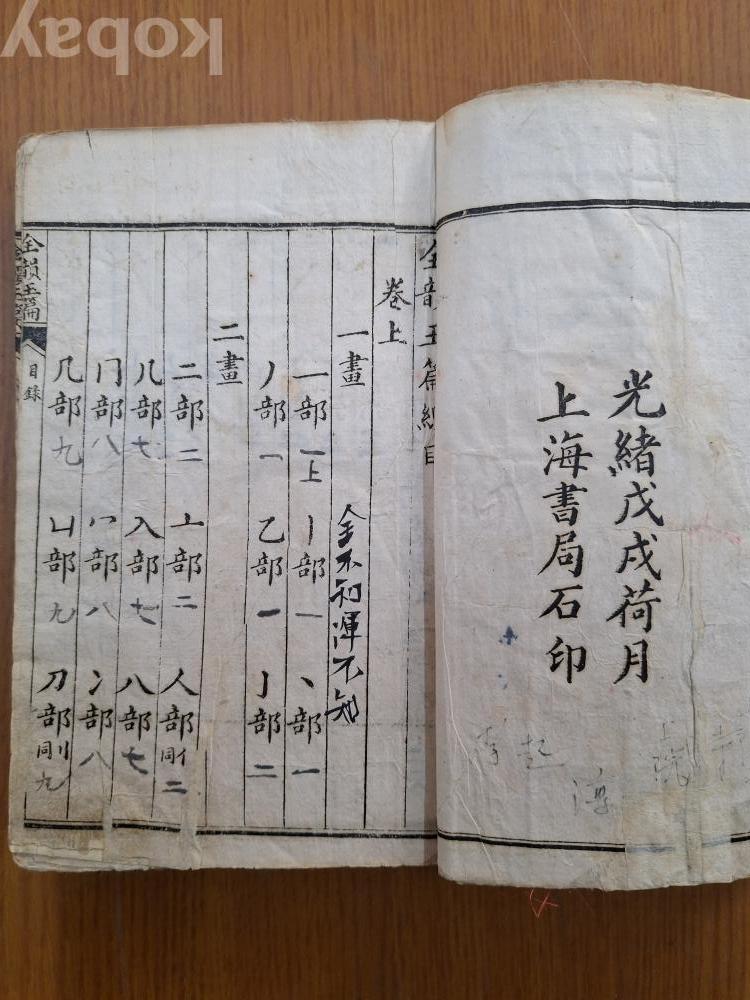 kobay
光緒戊戌荷月
上海書局石印
全韻玉篇總目
卷上
一畫
一部 一上 丨部 一 丶部 一
丿部 一 乙部 一 亅部 二
二畫
二部 二 亠部 二 人部 同亻 二
儿部 七 入部 七 八部 七
冂部 八 冖部 八 冫部 八
几部 九 凵部 九 刀部 同刂 九
全韻玉篇
目錄